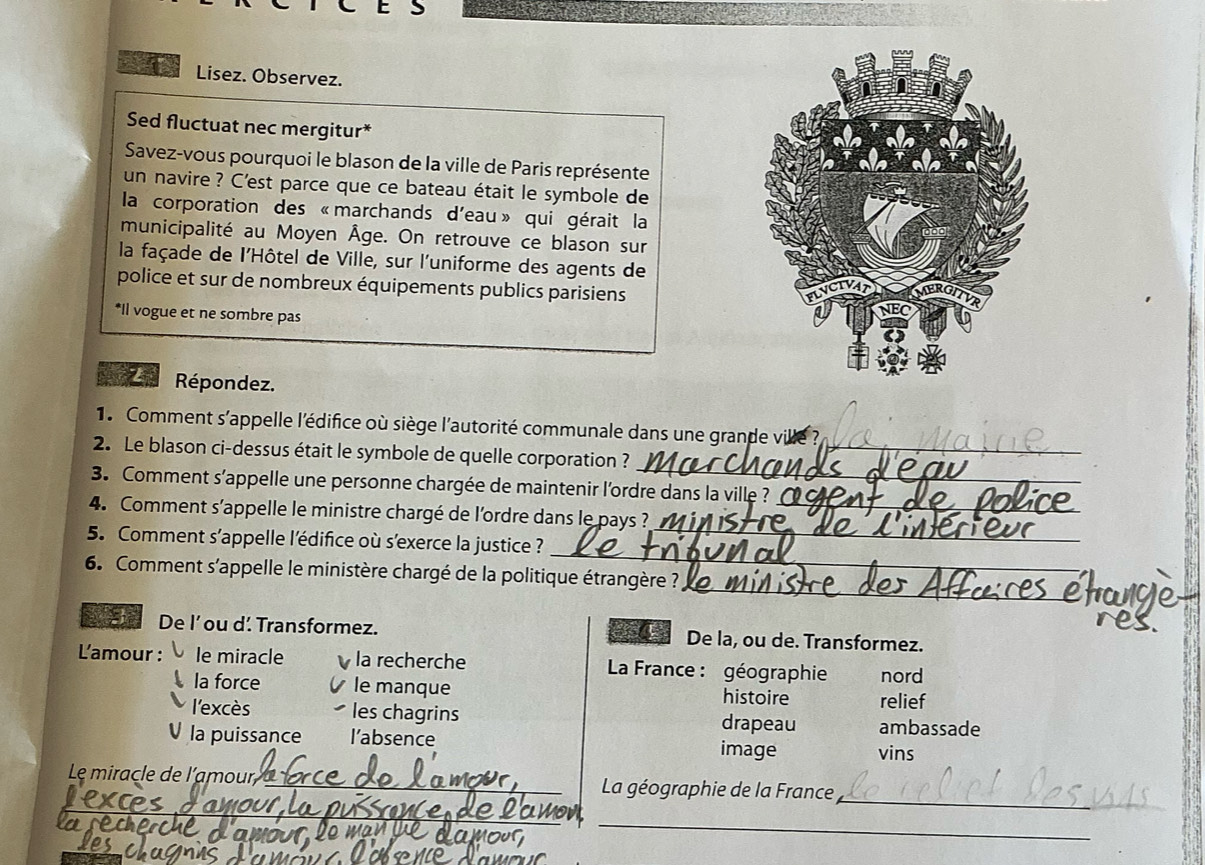 E R C I C E S
1 Lisez. Observez.
Sed fluctuat nec mergitur*
Savez-vous pourquoi le blason de la ville de Paris représente
un navire ? C'est parce que ce bateau était le symbole de
la corporation des « marchands d'eau » qui gérait la
municipalité au Moyen Âge. On retrouve ce blason sur
la façade de l'Hôtel de Ville, sur l'uniforme des agents de
police et sur de nombreux équipements publics parisiens
*Il vogue et ne sombre pas
FLVCTVAT NEC MERGITVR
2 Répondez.
1. Comment s'appelle l'édifice où siège l'autorité communale dans une grande ville ? la mairie
2. Le blason ci-dessus était le symbole de quelle corporation ? Marchands d'eau
3. Comment s'appelle une personne chargée de maintenir l'ordre dans la ville ? agent de police
4. Comment s'appelle le ministre chargé de l'ordre dans le pays ? ministre de l'intérieur
5. Comment s'appelle l'édifice où s'exerce la justice ? le tribunal
6. Comment s'appelle le ministère chargé de la politique étrangère ? le ministre des Affaires étrangè-
res.
3 De l' ou d'. Transformez.
L'amour : le miracle la recherche
la force le manque
l'excès les chagrins
la puissance l'absence
Le miracle de l'amour, la force de l'amour,
l'excès d'amour, la puissance de l'amour,
la recherche d'amour, le manque d'amour,
les chagrins d'amour, l'absence d'amour
4 De la, ou de. Transformez.
La France : géographie nord
histoire relief
drapeau ambassade
image vins
La géographie de la France, le relief